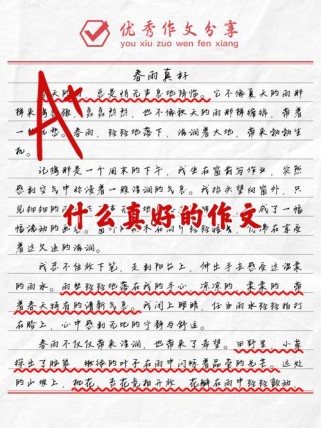 优秀作文分享
you xiu zuo wen fen xiang
春雨真好
A+
天的雨,总是悄无声息地降临。它不像夏天的雨那
样来得猛烈,轰轰烈烈,也不像秋天的雨那样缠绵,带着
春雨,轻轻地落下,滋润着大地,带来勃勃生
机。
记得那是一个周末的下午,我坐在窗前写作业,突然
感到空气中弥漫着一股清新的气息。我抬头望向窗外,只
见细细的
成了一幅
什么真好的作文
幅流动的画
在享受
着这久违的滋润。
我忍不住放下笔,走到阳台上,伸出手去感受这温柔
的雨水。雨丝轻轻地落在我的手心,凉凉的,柔柔的,带
着春天特有的清新气息。我闭上眼睛,任由雨水轻轻拍打
在脸上,心中感到无比的宁静与舒适。
春雨不仅仅带来滋润,也带来了希望。田野里,小草
探出了脑袋,嫩绿的叶子在雨中闪烁着晶莹的光芒。远处
的山坡上,桃花、杏花竞相开放,花瓣在雨中轻轻颤动,